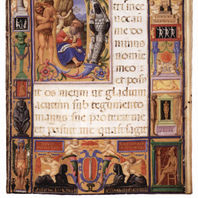 me do
minus
nomine
meo:
et posu
it os meum ut gladium
acutum sub tegumento
manus sue protexit me
et posuit me quasi sagit